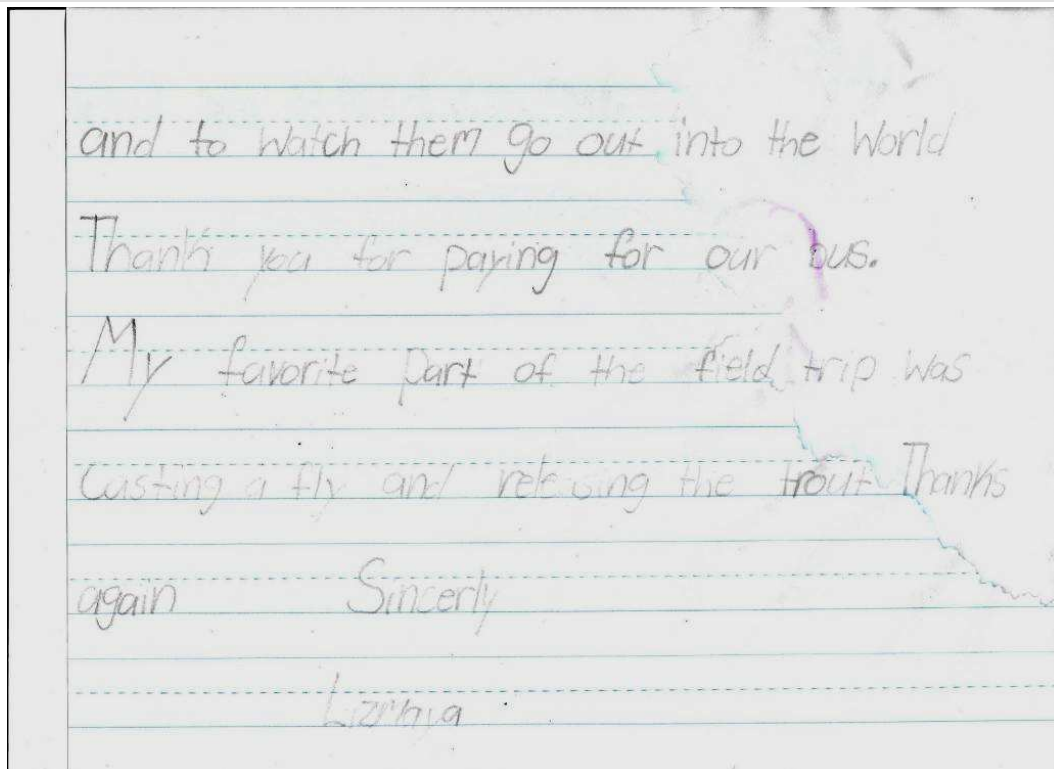 and to watch them go out into the world
Thank you for paying for our bus.
My favorite part of the field trip was
Casting a fly and releasing the trout Thanks
again Sincerly